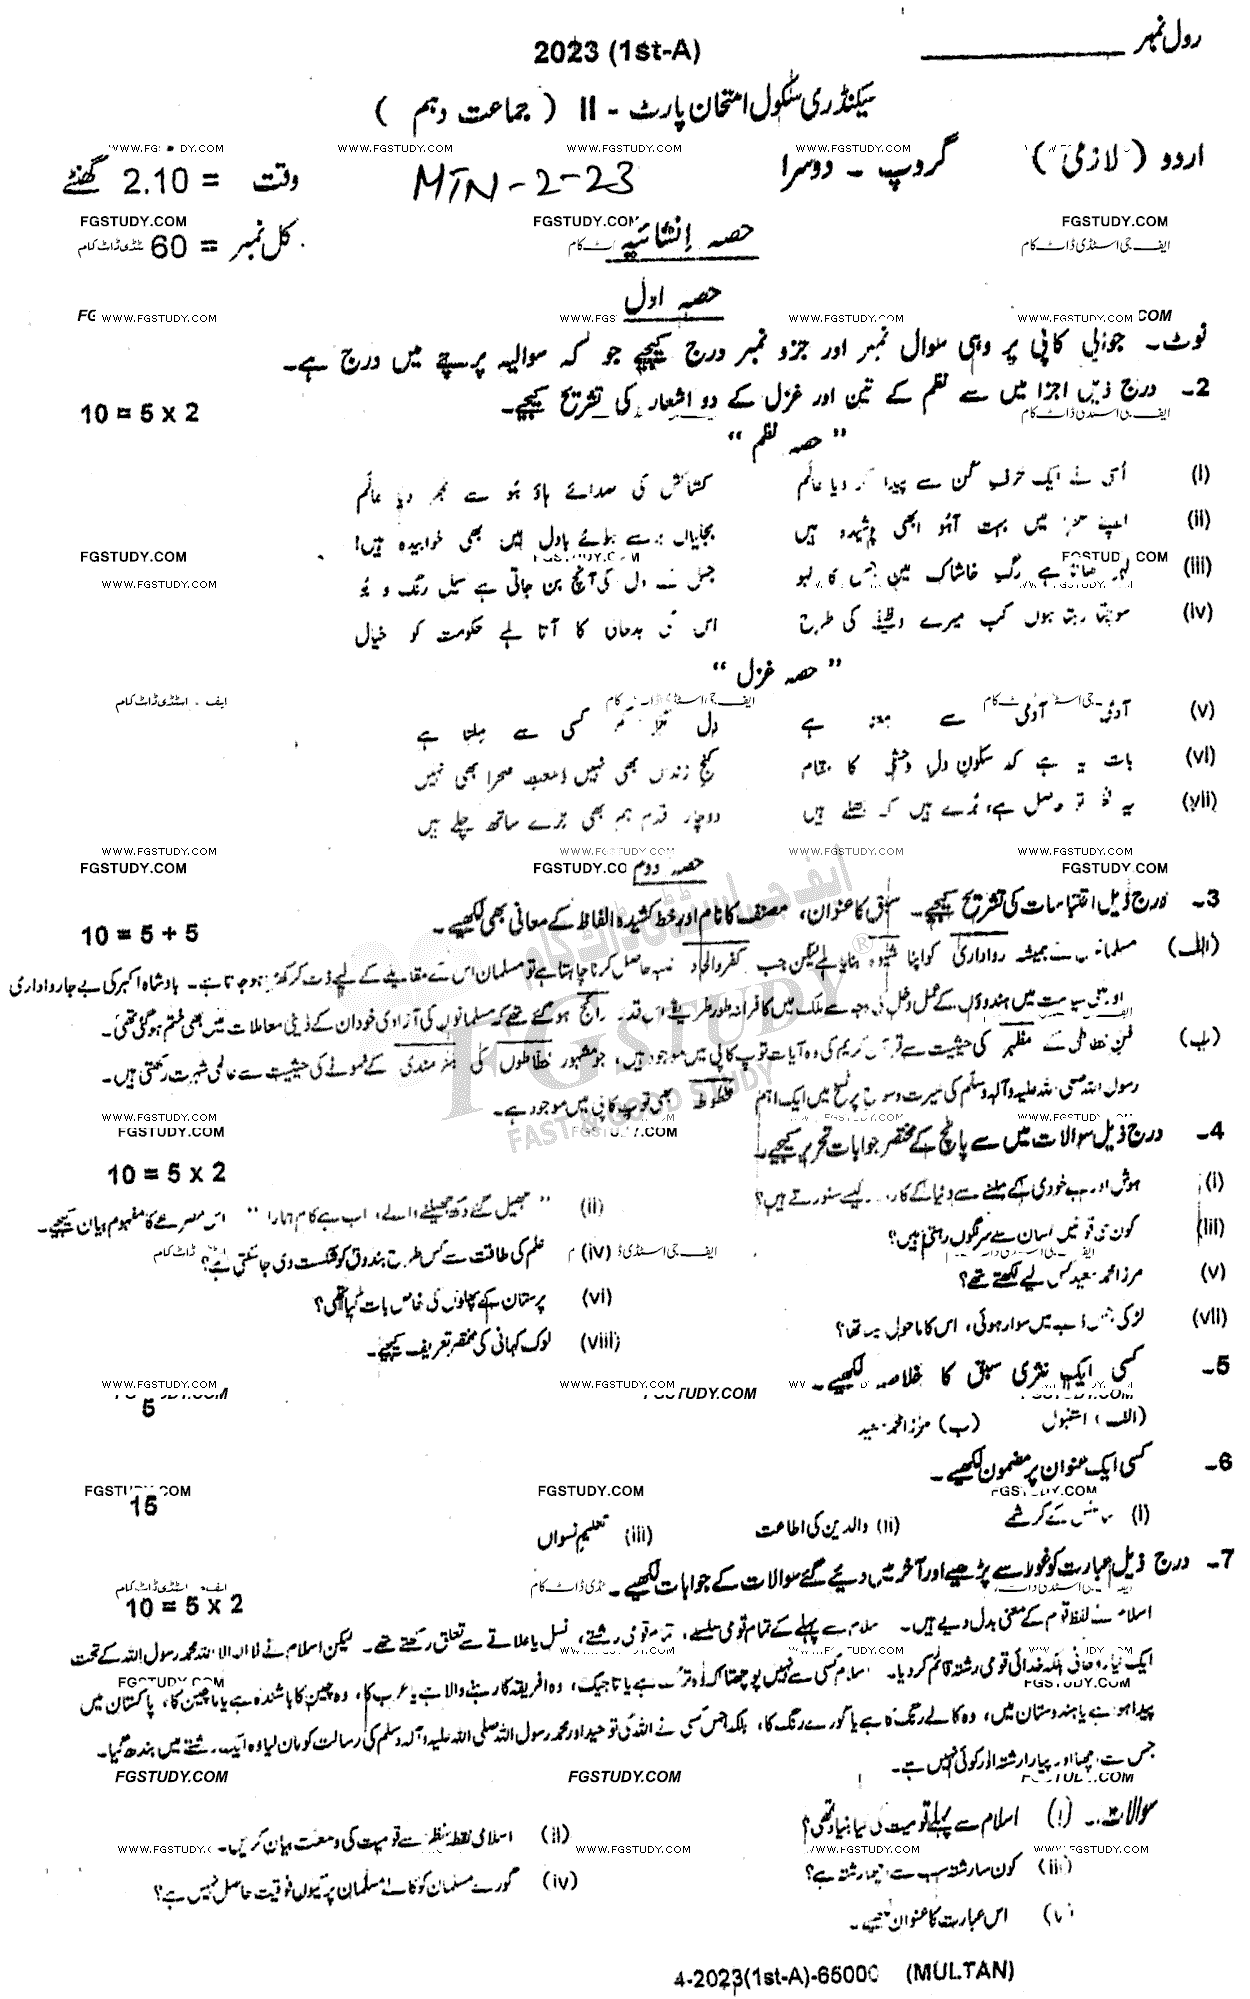 رول نمبر
2023 (1st-A)
سیکنڈری سکول امتحان پارٹ - II ( جماعت دہم )
WWW.FGSTUDY.COM
اردو ( لازمی ) گروپ - دوسرا MTN-2-23 وقت = 2.10 گھنٹے
FGSTUDY.COM FGSTUDY.COM FGSTUDY.COM
حصہ اِنشائیہ کل نمبر = 60
ایف جی اسٹڈی ڈاٹ کام
حصہ اول
WWW.FGSTUDY.COM
نوٹ۔ جوابی کاپی پر وہی سوال نمبر اور جزو نمبر درج کیجیے جو کہ سوالیہ پرچے میں درج ہے۔
2۔ درج ذیل اجزا میں سے نظم کے تین اور غزل کے دو اشعار کی تشریح کیجیے۔ 10 = 5 x 2
ایف جی اسٹڈی ڈاٹ کام
" حصہ نظم "
(i) اُسی نے ایک حرفِ کُن سے پیدا کر دیا عالَم کشاکش کی صدائے ہاؤ ہُو سے بھر دیا عالَم
(ii) اپنے میں بہت آہُو ابھی پوشیدہ ہیں بجلیاں برسے ہوئے بادل میں بھی خوابیدہ ہیں!
FGSTUDY.COM
(iii) ہے رگِ خاشاک میں جس کا لہو جس کے دل کی آنچ بن جاتی ہے سیل رنگ و بُو
WWW.FGSTUDY.COM
(iv) سوچتا رہتا ہوں کب میرے وظیفے کی طرح اس کی بدحالی کا آتا ہے حکومت کو خیال
" حصہ غزل "
(v) آدمی آدمی سے ملتا ہے دل مگر کم کسی سے ملتا ہے
(vi) بات یہ ہے کہ سکونِ دلِ وحشی کا مقام کنجِ زنداں بھی نہیں وسعتِ صحرا بھی نہیں
(vii) یہ ہے، بُرے ہیں کہ بھلے ہیں دوچار قدم ہم بھی ترے ساتھ چلے ہیں
WWW.FGSTUDY.COM
FGSTUDY.COM
حصہ دوم
3۔ درج ذیل اقتباسات کی تشریح کیجیے۔ سبق کا عنوان، مصنف کا نام اور خط کشیدہ الفاظ کے معانی بھی لکھیے۔ 10 = 5 + 5
(الف) مسلمانوں نے ہمیشہ رواداری کو اپنا شیوہ بنایا ہے لیکن جب کفر و الحاد غلبہ حاصل کرنا چاہتا ہے تو مسلمان اس کے مقابلے کے لیے ڈٹ کر کھڑا ہو جاتا ہے۔ بادشاہ اکبر کی بے جا رواداری
اور ملکی سیاست میں ہندوؤں کے عمل دخل کی وجہ سے ملک میں کافرانہ طور طریقے اس قدر رائج ہو گئے تھے کہ مسلمانوں کی آزادی خود ان کے دینی معاملات میں بھی ختم ہو گئی تھی۔
(ب) فنِ خطاطی کے مظہر کی حیثیت سے قرآن کریم کی وہ آیات توپ کاپی میں موجود ہیں، جو مشہور خطاطوں کی ہنر مندی کے نمونے کی حیثیت سے عالمی شہرت رکھتی ہیں۔
رسول اللہ صلی اللہ علیہ وآلہ وسلم کی سیرت و سوانح پر نسخ میں ایک اہم مخطوطہ بھی توپ کاپی میں موجود ہے۔
FGSTUDY
FAST & GOOD STUDY
4۔ درج ذیل سوالات میں سے پانچ کے مختصر جوابات تحریر کیجیے۔ 10 = 5 x 2
(i) ہوش اور جب خودی کے ملنے سے دنیا کے کام کیسے سنورتے ہیں؟ (ii) " جھیل گئے دُکھ جھیلنے والے، اب ہے کام ہمارا " اس مصرعے کا مفہوم بیان کیجیے۔
(iii) کون سی قوتیں انسان سے سرنگوں رہتی ہیں؟ (iv) علم کی طاقت سے کس طرح بندوق کو شکست دی جا سکتی ہے؟
(v) مرزا محمد سعید کس لیے لکھتے تھے؟ (vi) پرستان کے پھلوں کی خاص بات کیا تھی؟
(vii) لڑکی جس میں سوار ہوئی، اس کا ماحول کیسا تھا؟ (viii) لوک کہانی کی مختصر تعریف کیجیے۔
5۔ کسی ایک نثری سبق کا خلاصہ لکھیے۔ 5
(الف) استنبول (ب) مرزا محمد سعید
6۔ کسی ایک عنوان پر مضمون لکھیے۔ 15
(i) سائنس کے کرشمے (ii) والدین کی اطاعت (iii) تعلیمِ نسواں
7۔ درج ذیل عبارت کو غور سے پڑھیے اور آخر میں دیئے گئے سوالات کے جوابات لکھیے۔ 10 = 5 x 2
اسلام نے لفظ قوم کے معنی بدل دیے ہیں۔ اسلام سے پہلے کے تمام قومی سلسلے، تمام قومی رشتے، نسل یا علاقے سے تعلق رکھتے تھے۔ لیکن اسلام نے لا الہ الا اللہ محمد رسول اللہ کے تحت
ایک نیا روحانی بلکہ خدائی قومی رشتہ قائم کر دیا۔ اسلام کسی سے نہیں پوچھتا کہ وہ ترک ہے یا تاجیک، وہ افریقہ کا رہنے والا ہے یا عرب کا، وہ چین کا باشندہ ہے یا ماچین کا، پاکستان میں
پیدا ہوا ہے یا ہندوستان میں، وہ کالے رنگ کا ہے یا گورے رنگ کا، بلکہ جس کسی نے اللہ کی توحید اور محمد رسول اللہ صلی اللہ علیہ وآلہ وسلم کی رسالت کو مان لیا وہ ایک رشتے میں بندھ گیا۔
جس سے اچھا اور پیارا رشتہ اور کوئی نہیں ہے۔
FGSTUDY.COM FGSTUDY.COM
سوالات۔ (i) اسلام سے پہلے قومیت کی کیا بنیاد تھی؟ (ii) اسلامی نقطہ نظر سے قومیت کی وسعت بیان کریں۔
(iii) کون سا رشتہ سب سے اچھا رشتہ ہے؟ (iv) گورے مسلمان کو کالے مسلمان پر کیوں فوقیت حاصل نہیں ہے؟
(v) اس عبارت کا عنوان لکھیے۔
4-2023(1st-A)-65000 (MULTAN)